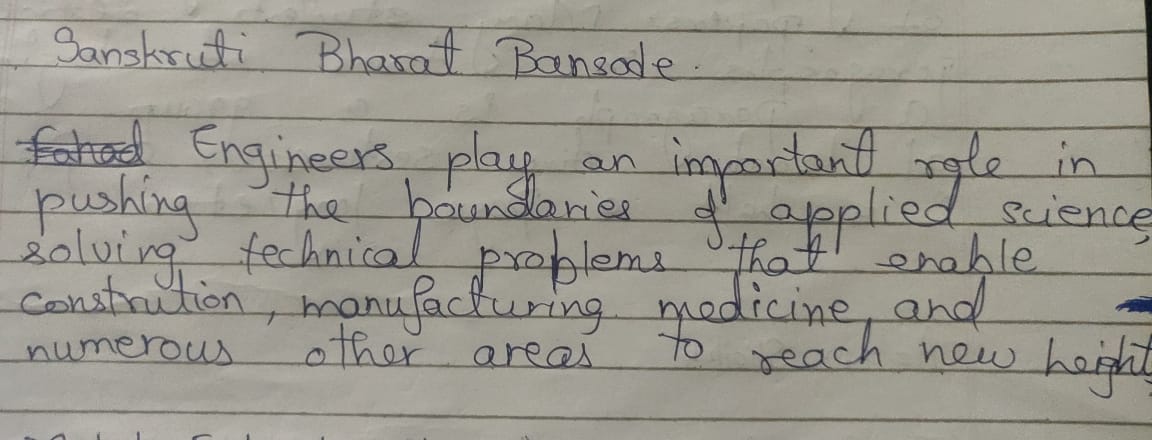 Sanskruti Bharat Bansode.
Engineers play an important role in
pushing the boundaries of applied science,
solving technical problems that enable
constrution, manufacturing. medicine, and
numerous other areas to reach new height